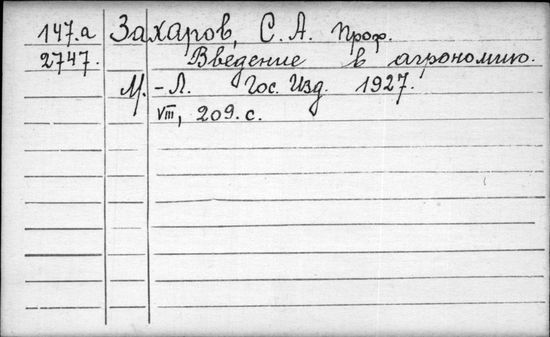 147.а Захаров, С. А. Проф.
2747. Введение в агрономию.
М.-Л. Гос. Изд. 1927.
VIII, 209. с.